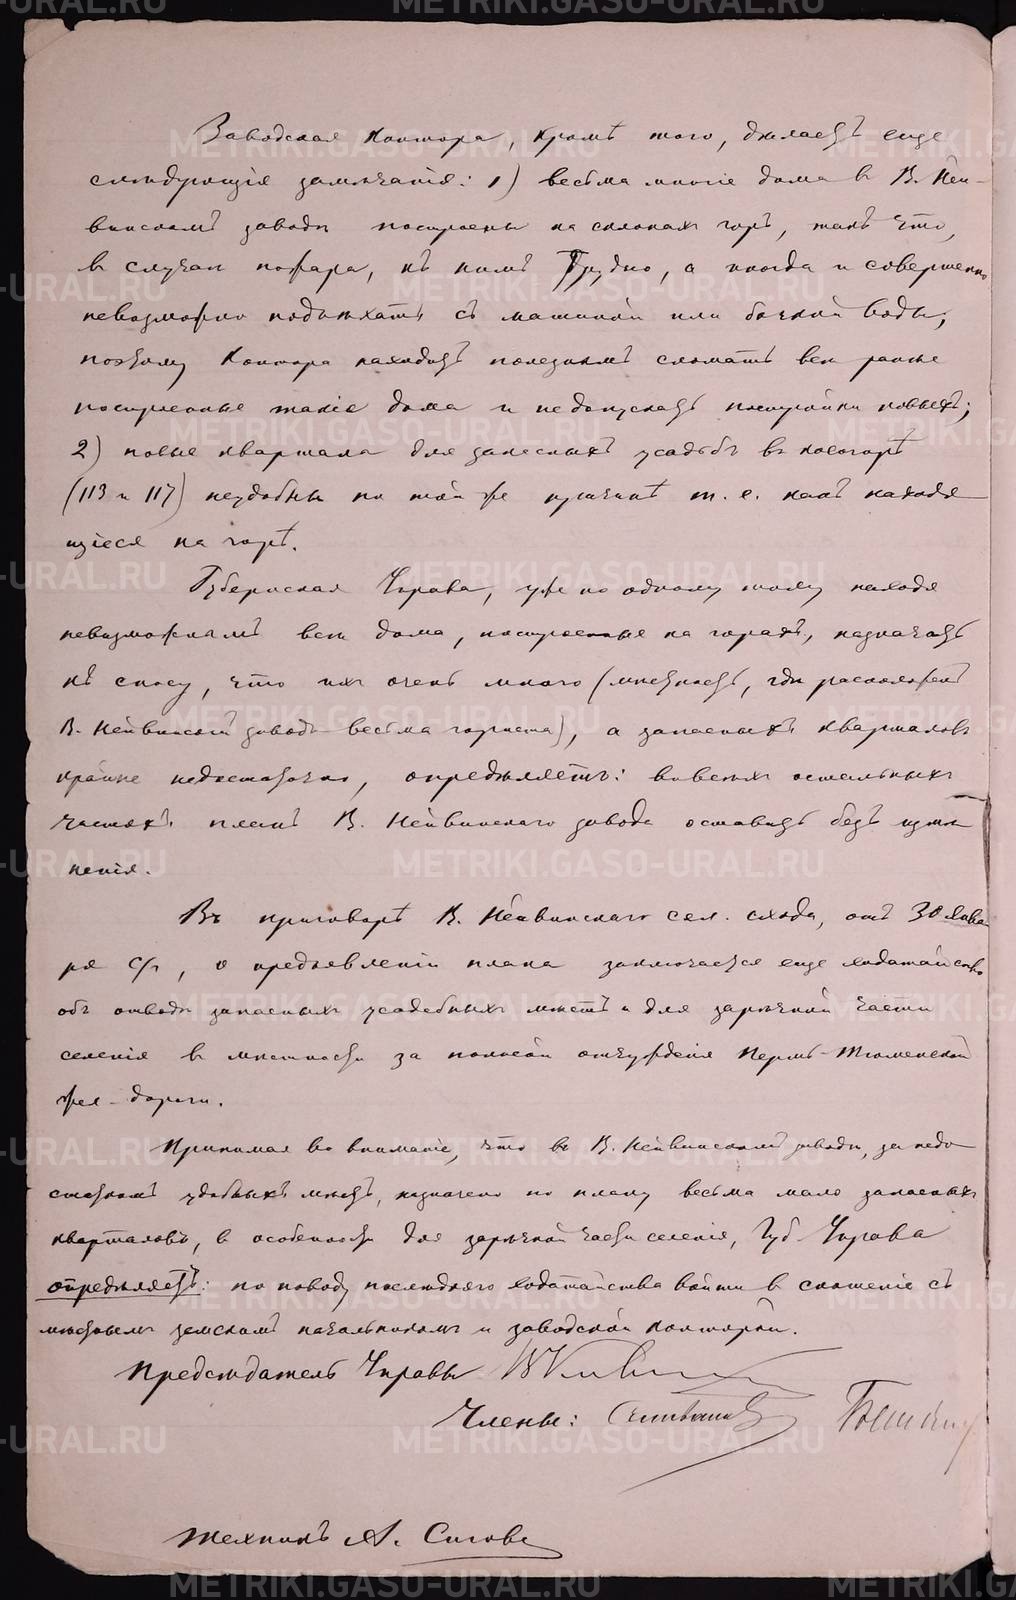 Заводская Контора, кромѣ того, дѣлаетъ еще
слѣдующія замѣчанія: 1) весьма многіе дома в В. Ней-
винскомъ заводѣ построены на склонахъ горъ, такъ что,
в случаѣ пожара, къ нимъ трудно, а иногда и совершенно
невозможно подъѣхать съ машиной или бочкой воды,
поэтому Контора находитъ полезнымъ сломать всѣ ранѣе
построенные такіе дома и недопускать постройки новыхъ;
2) новые квартала для запасныхъ усадьбъ в косогорѣ
(113 и 117) неудобны по той же причинѣ т. е. какъ находя
щіеся на горѣ.
Губернская Управа, уже по одному тому находя
невозможнымъ всѣ дома, построенные на горахъ, назначать
къ сносу, что ихъ очень много (мѣстность, гдѣ расположенъ
В. Нейвинскій заводъ весьма гориста), а запасныхъ кварталовъ
крайне недостаточно, опредѣляетъ: во всѣхъ остальныхъ
частяхъ планъ В. Нейвинскаго завода оставить безъ измѣ
ненія.
Въ приговорѣ В. Нейвинскаго сел. схода, отъ 30 Янва
ря с/г, о предъявленіи плана заключается еще ходатайство
объ отводѣ запасныхъ усадебныхъ мѣстъ и для зарѣчной части
селенія в мѣстности за полосой отчужденія Пермь-Тюменской
жел-дороги.
Принимая во вниманіе, что въ В. Нейвинскомъ заводѣ, за недо
статкомъ удобныхъ мѣстъ, назначено по плану весьма мало запасныхъ
кварталовъ, в особенности для зарѣчной части селенія, Губ. Управа
опредѣляетъ: по поводу послѣдняго ходатайства войти в сношеніе съ
мѣстнымъ земскимъ начальникомъ и заводской конторой.
Предсѣдатель Управы
Члены: Селивановъ
Техникъ А. Сигов
METRIKI.GASO-URAL.RU